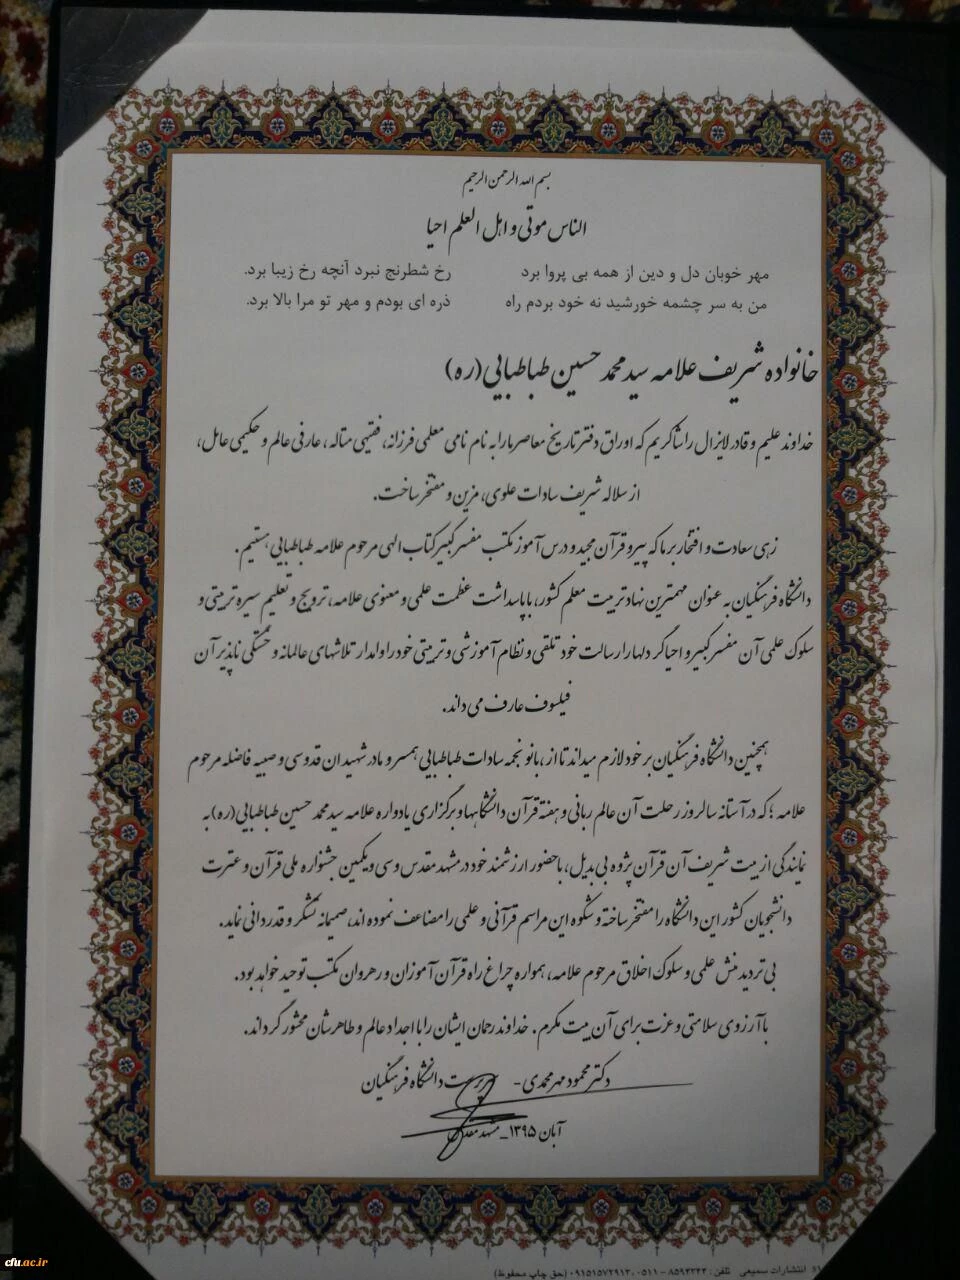 بسم الله الرحمن الرحیم
الناس موتی و اهل العلم احیا
مهر خوبان دل و دین از همه بی پروا برد رخ شطرنج نبرد آنچه رخ زیبا برد.
من به سر چشمه خورشید نه خود بردم راه ذره ای بودم و مهر تو مرا بالا برد.
خانواده شریف علامه سید محمد حسین طباطبایی (ره)
خداوند علیم و قادر لایزال را شاکریم که اوراق دفتر تاریخ معاصر ما را به نام نامی معلمی فرزانه، فقهی متاله، عارفی عالم و حکیمی عامل،
از سلاله شریف سادات علوی، مزین و مفتخر ساخت.
زهی سعادت و افتخار بر ما که پیرو قرآن مجید و درس آموز مکتب مفسر کبیر کتاب الهی مرحوم علامه طباطبایی هستیم.
دانشگاه فرهنگیان به عنوان مهمترین نهاد تربیت معلم کشور، با پاسداشت عظمت علمی و معنوی علامه، ترویج و تعلیم سیره تربیتی و
سلوک علمی آن مفسر کبیر و احیاگر دلها را رسالت خود تلقی و نظام آموزشی و تربیتی خود را وامدار تلاشهای عالمانه و خستگی ناپذیر آن
فیلسوف عارف می داند.
همچنین دانشگاه فرهنگیان بر خود لازم میداند تا از، بانو نجمه سادات طباطبایی همسر و مادر شهیدان قدوسی و صبیه فاضله مرحوم
علامه؛ که در آستانه سالروز رحلت آن عالم ربانی و هفته قرآن دانشگاهها و برگزاری یادواره علامه سید محمد حسین طباطبایی (ره) به
نمایندگی از بیت شریف آن قرآن پژوه بی بدیل، با حضور ارزشمند خود در مشهد مقدس و سی و یکمین جشنواره ملی قرآن و عترت
دانشجویان کشور این دانشگاه را مفتخر ساخته و شکوه این مراسم قرآنی و علمی را مضاعف نموده اند، صمیمانه تشکر و قدردانی نماید.
بی تردید منش علمی و سلوک اخلاق مرحوم علامه، همواره چراغ راه قرآن آموزان و رهروان مکتب توحید خواهد بود.
با آرزوی سلامتی و عزت برای آن بیت مکرم. خداوند رحمان ایشان را با اجداد عالم و طاهرشان محشور گرداند.
دکتر محمود مهرمحمدی - سرپرست دانشگاه فرهنگیان
آبان ۱۳۹۵ _ مشهد مقدس
انتشارات سمیعی تلفن: ۸۵۹۳۲۴۴ - ۰۵۱۱ ، ۰۹۱۵۱۵۷۲۹۱۳ (حق چاپ محفوظ)
cfu.ac.ir